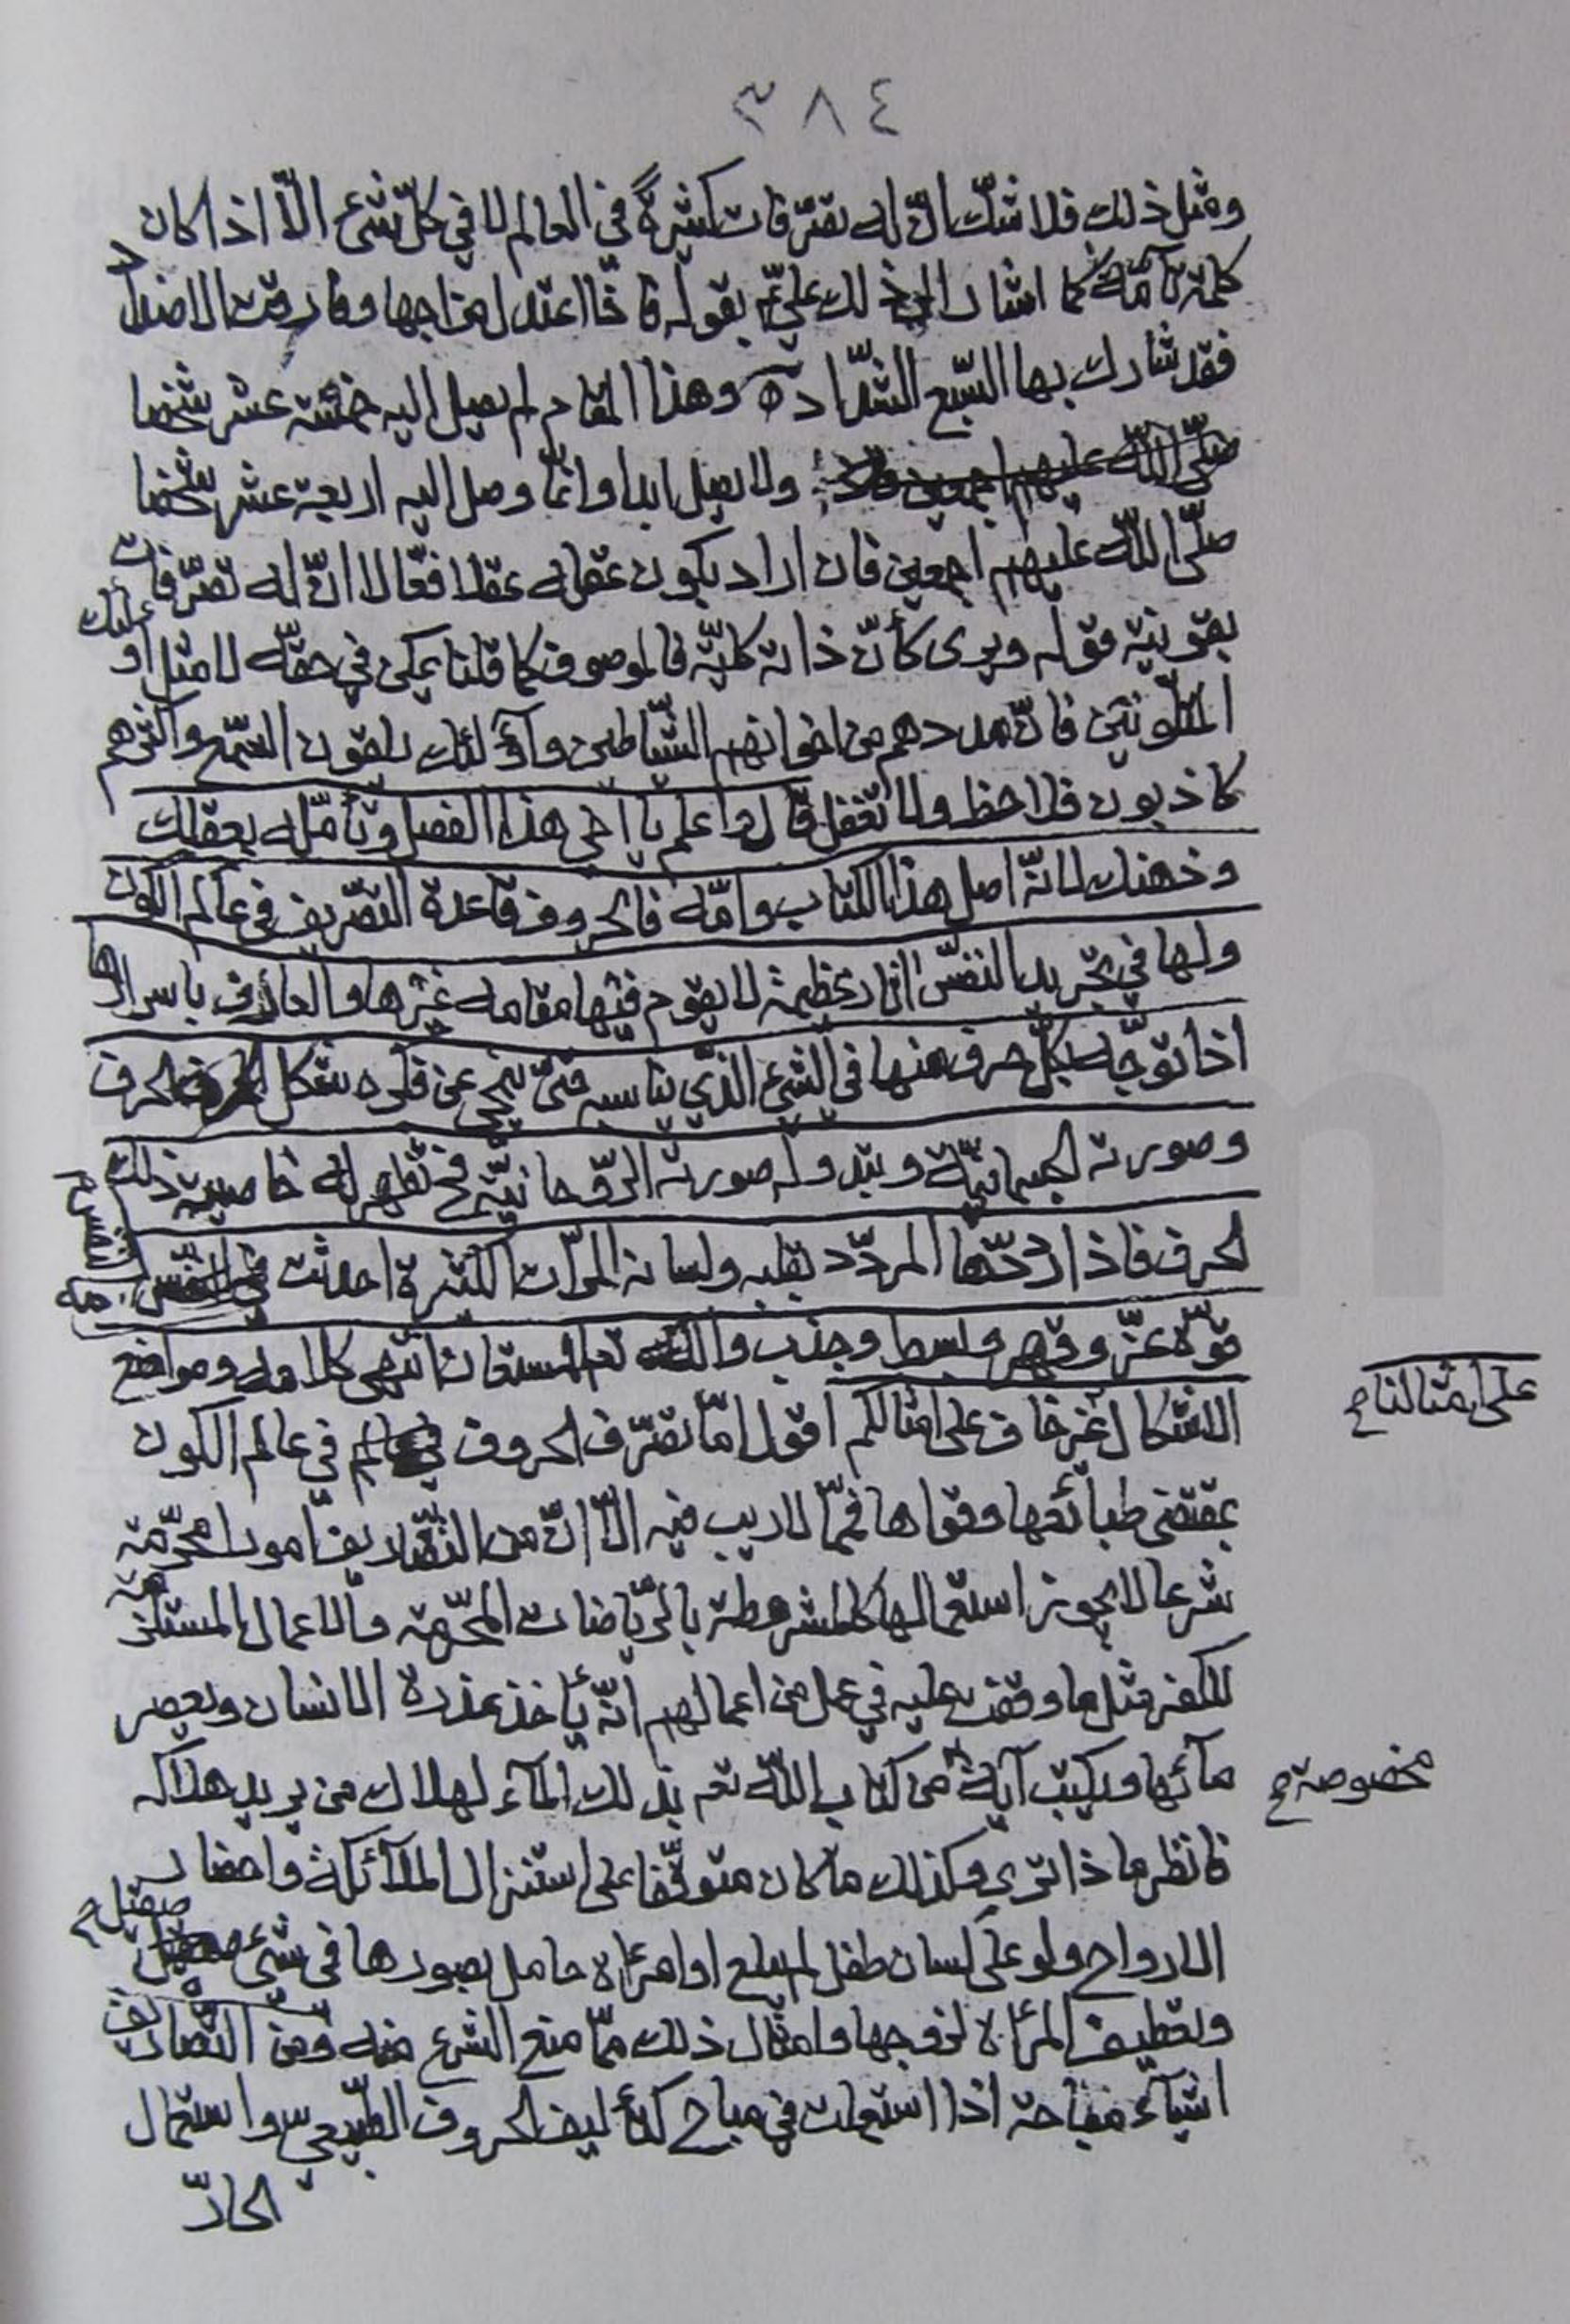 ٣٨٤
ومثل ذلك فلا شك ان له تصرفات كثيرة في العالم لا في كل شيء الّا اذا كان
كلمته تامّة كما اشار الى ذلك عليّ ع بقوله فاذا اعتدل مزاجها وفارقت الاضداد
فقد شارك بها السّبع الشّداد وهذا المقام لم يصل اليه خمسة عشر شخصا
صلّى اللّه عليهم اجمعين ولا يصل ابدا وانّما وصل اليه اربعة عشر شخصا
صلّى اللّه عليهم اجمعين فان اراد بكون عقله عقلا فعّالا انّ له تصرّفات
بقرينة قوله ويرى كأنّ ذاته كليّة فالموصوف كما قلنا يمكن في حقّه لا مثل اولئك
المتلونين فانّ مددهم من اخوانهم الشّياطين واولئك يلقون السّمع واكثرهم
كاذبون فلاحظ ولا تغفل قال واعلم يا اخي هذا الفصل وتأمّله بعقلك
وذهنك لانّه اصل هذا الكتاب وامّه فالحروف قاعدة التصّريف في عالم الكون
ولها في تجريد النفس اثار عظيمة لا يقوم فيها مقامه غيرها والعارف باسرارها
اذا توجّه بكلّ حرف منها في الشيء الذّي يناسبه حتى ينمحي عن فكره شكل الحرف
وصورته الجسمانيّة وتبدو له صورته الرّوحانيّة فح تظهر له خاصية ذلك
الحرف فاذا ردّدها المردّد بقلبه ولسانه المرّات الكثيرة احدثت في نفسه
قوّة عزّ وقهر وبسط وجذب واللّه تعالى المستعان انتهى كلامه ومواضع
الاشكال غير خاف على امثالكم اقول امّا تصرّف الحروف في عالم الكون
على امثالنا ح
بمقتضى طبائعها وقواها فممّا لا ريب فيه الّا انّ من التصّاريف امورا محرّمة
شرعا لا يجوز استعمالها كالمشروطة بالرّياضات المحرّمة والاعمال المستلزمة
للكفر مثل ما وقفت عليه في عمل من اعمالهم انّه يأخذ عذرة الانسان ويعصر
مآئها ويكتب آية من كتاب اللّه تع بذلك المآء لهلاك من يريد هلاكه
مخصوصة ح
فانظر ماذا ترى وكذلك ما كان متوقّفا على استنزال الملآئكة واحضار
الارواح ولو على لسان طفل او امرءاة حامل بصورها في شيء صيقل
وتعطيف المرأة لزوجها وامثال ذلك ممّا منع الشرع منه ومن التصّاريف
اشيآء مباحة اذا استعملت في مباح كتأليف الحروف الطّبيعي واستعمال
الحارّ